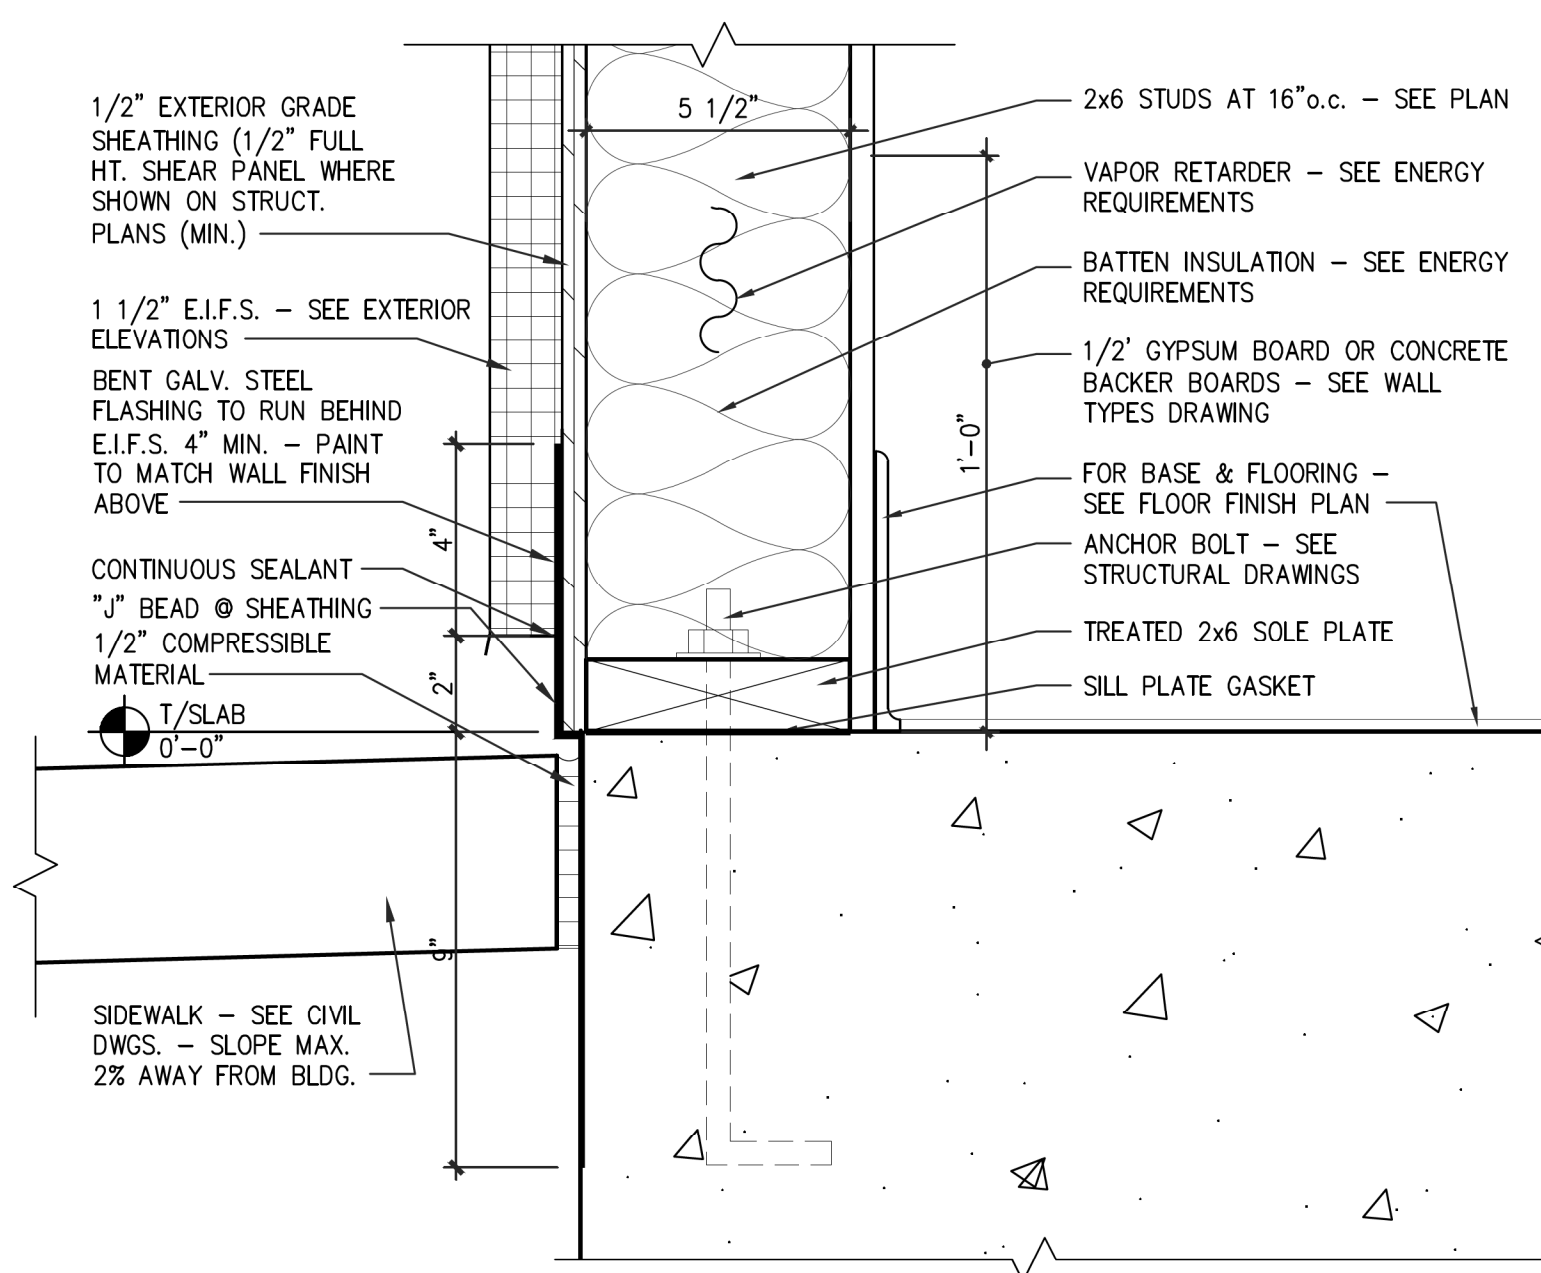 1/2" EXTERIOR GRADE
SHEATHING (1/2" FULL
HT. SHEAR PANEL WHERE
SHOWN ON STRUCT.
PLANS (MIN.)
1 1/2" E.I.F.S. – SEE EXTERIOR
ELEVATIONS
BENT GALV. STEEL
FLASHING TO RUN BEHIND
E.I.F.S. 4" MIN. – PAINT
TO MATCH WALL FINISH
ABOVE
CONTINUOUS SEALANT
"J" BEAD @ SHEATHING
1/2" COMPRESSIBLE
MATERIAL
T/SLAB
0'-0"
SIDEWALK – SEE CIVIL
DWGS. – SLOPE MAX.
2% AWAY FROM BLDG.
4"
2"
9"
5 1/2"
1'-0"
2x6 STUDS AT 16"o.c. – SEE PLAN
VAPOR RETARDER – SEE ENERGY
REQUIREMENTS
BATTEN INSULATION – SEE ENERGY
REQUIREMENTS
1/2' GYPSUM BOARD OR CONCRETE
BACKER BOARDS – SEE WALL
TYPES DRAWING
FOR BASE & FLOORING –
SEE FLOOR FINISH PLAN
ANCHOR BOLT – SEE
STRUCTURAL DRAWINGS
TREATED 2x6 SOLE PLATE
SILL PLATE GASKET